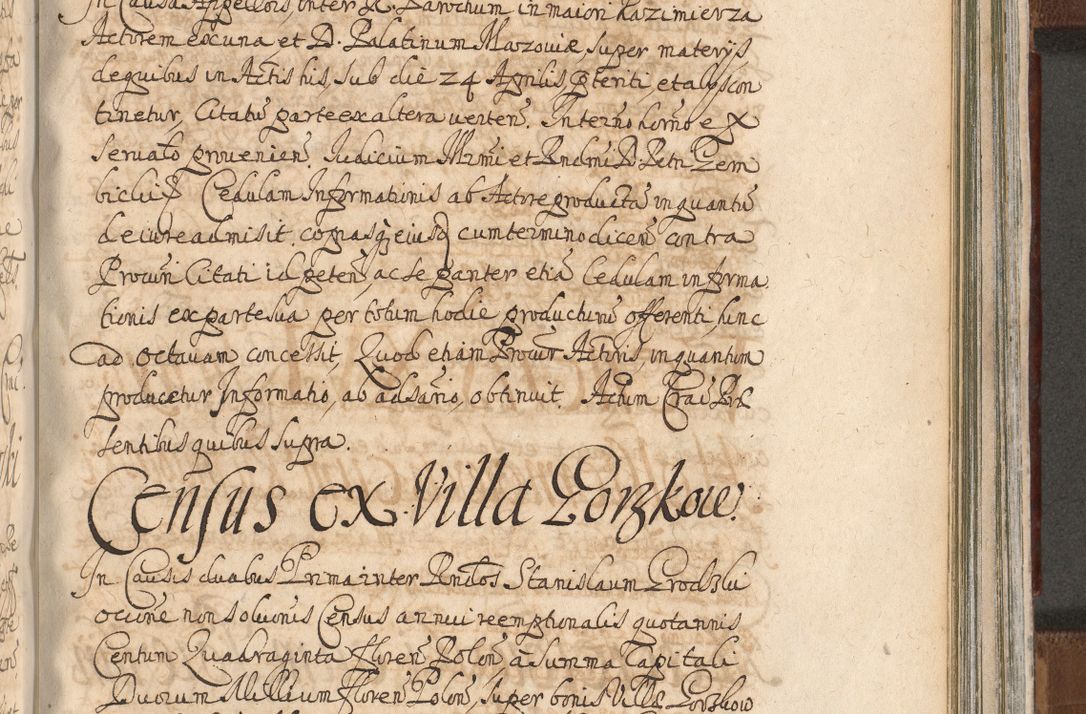 In Causa Appellõis, inter R. Parochum in maiori Kazimierza
Actorem ex una et D. Palatinum Mazoviæ, super materijs
de quibus in Actis his, sub die 24 Aprilis pteriti, et alijs con
tinetur, Citatũ parte ex altera verteñ. In termño horño ex
servato provenieñ. Iudicium Illrmi et Rndmi D. Petri Gem
bicki Cedulam Informationis ab Actore productã in quantũ
de iure admisit, copiasq eiusq cum termino diceñ contra
Procurñ Citati id peteñ, ac se pariter etiã Cedulam informa
tionis ex parte sua per totum hodie producturũ offerenti hinc
ad octavam concessit, Quod etiam Procur Actoris, in quantum
producetur Informatio, ab adversario, obtinuit. Actum Crac Præ
sentibus quibus supra.
Census ex Villa Gorzkow.
In Causis duabus Prima inter Rndos Stanislaum Grodzki
ocione non solutionis Census annui reemptionalis quotannis
Centum Quadraginta floreñ Poloñ à summa Capitali
Duorum Millium floreñ Poloñ, super bonis Villæ Gorzkow